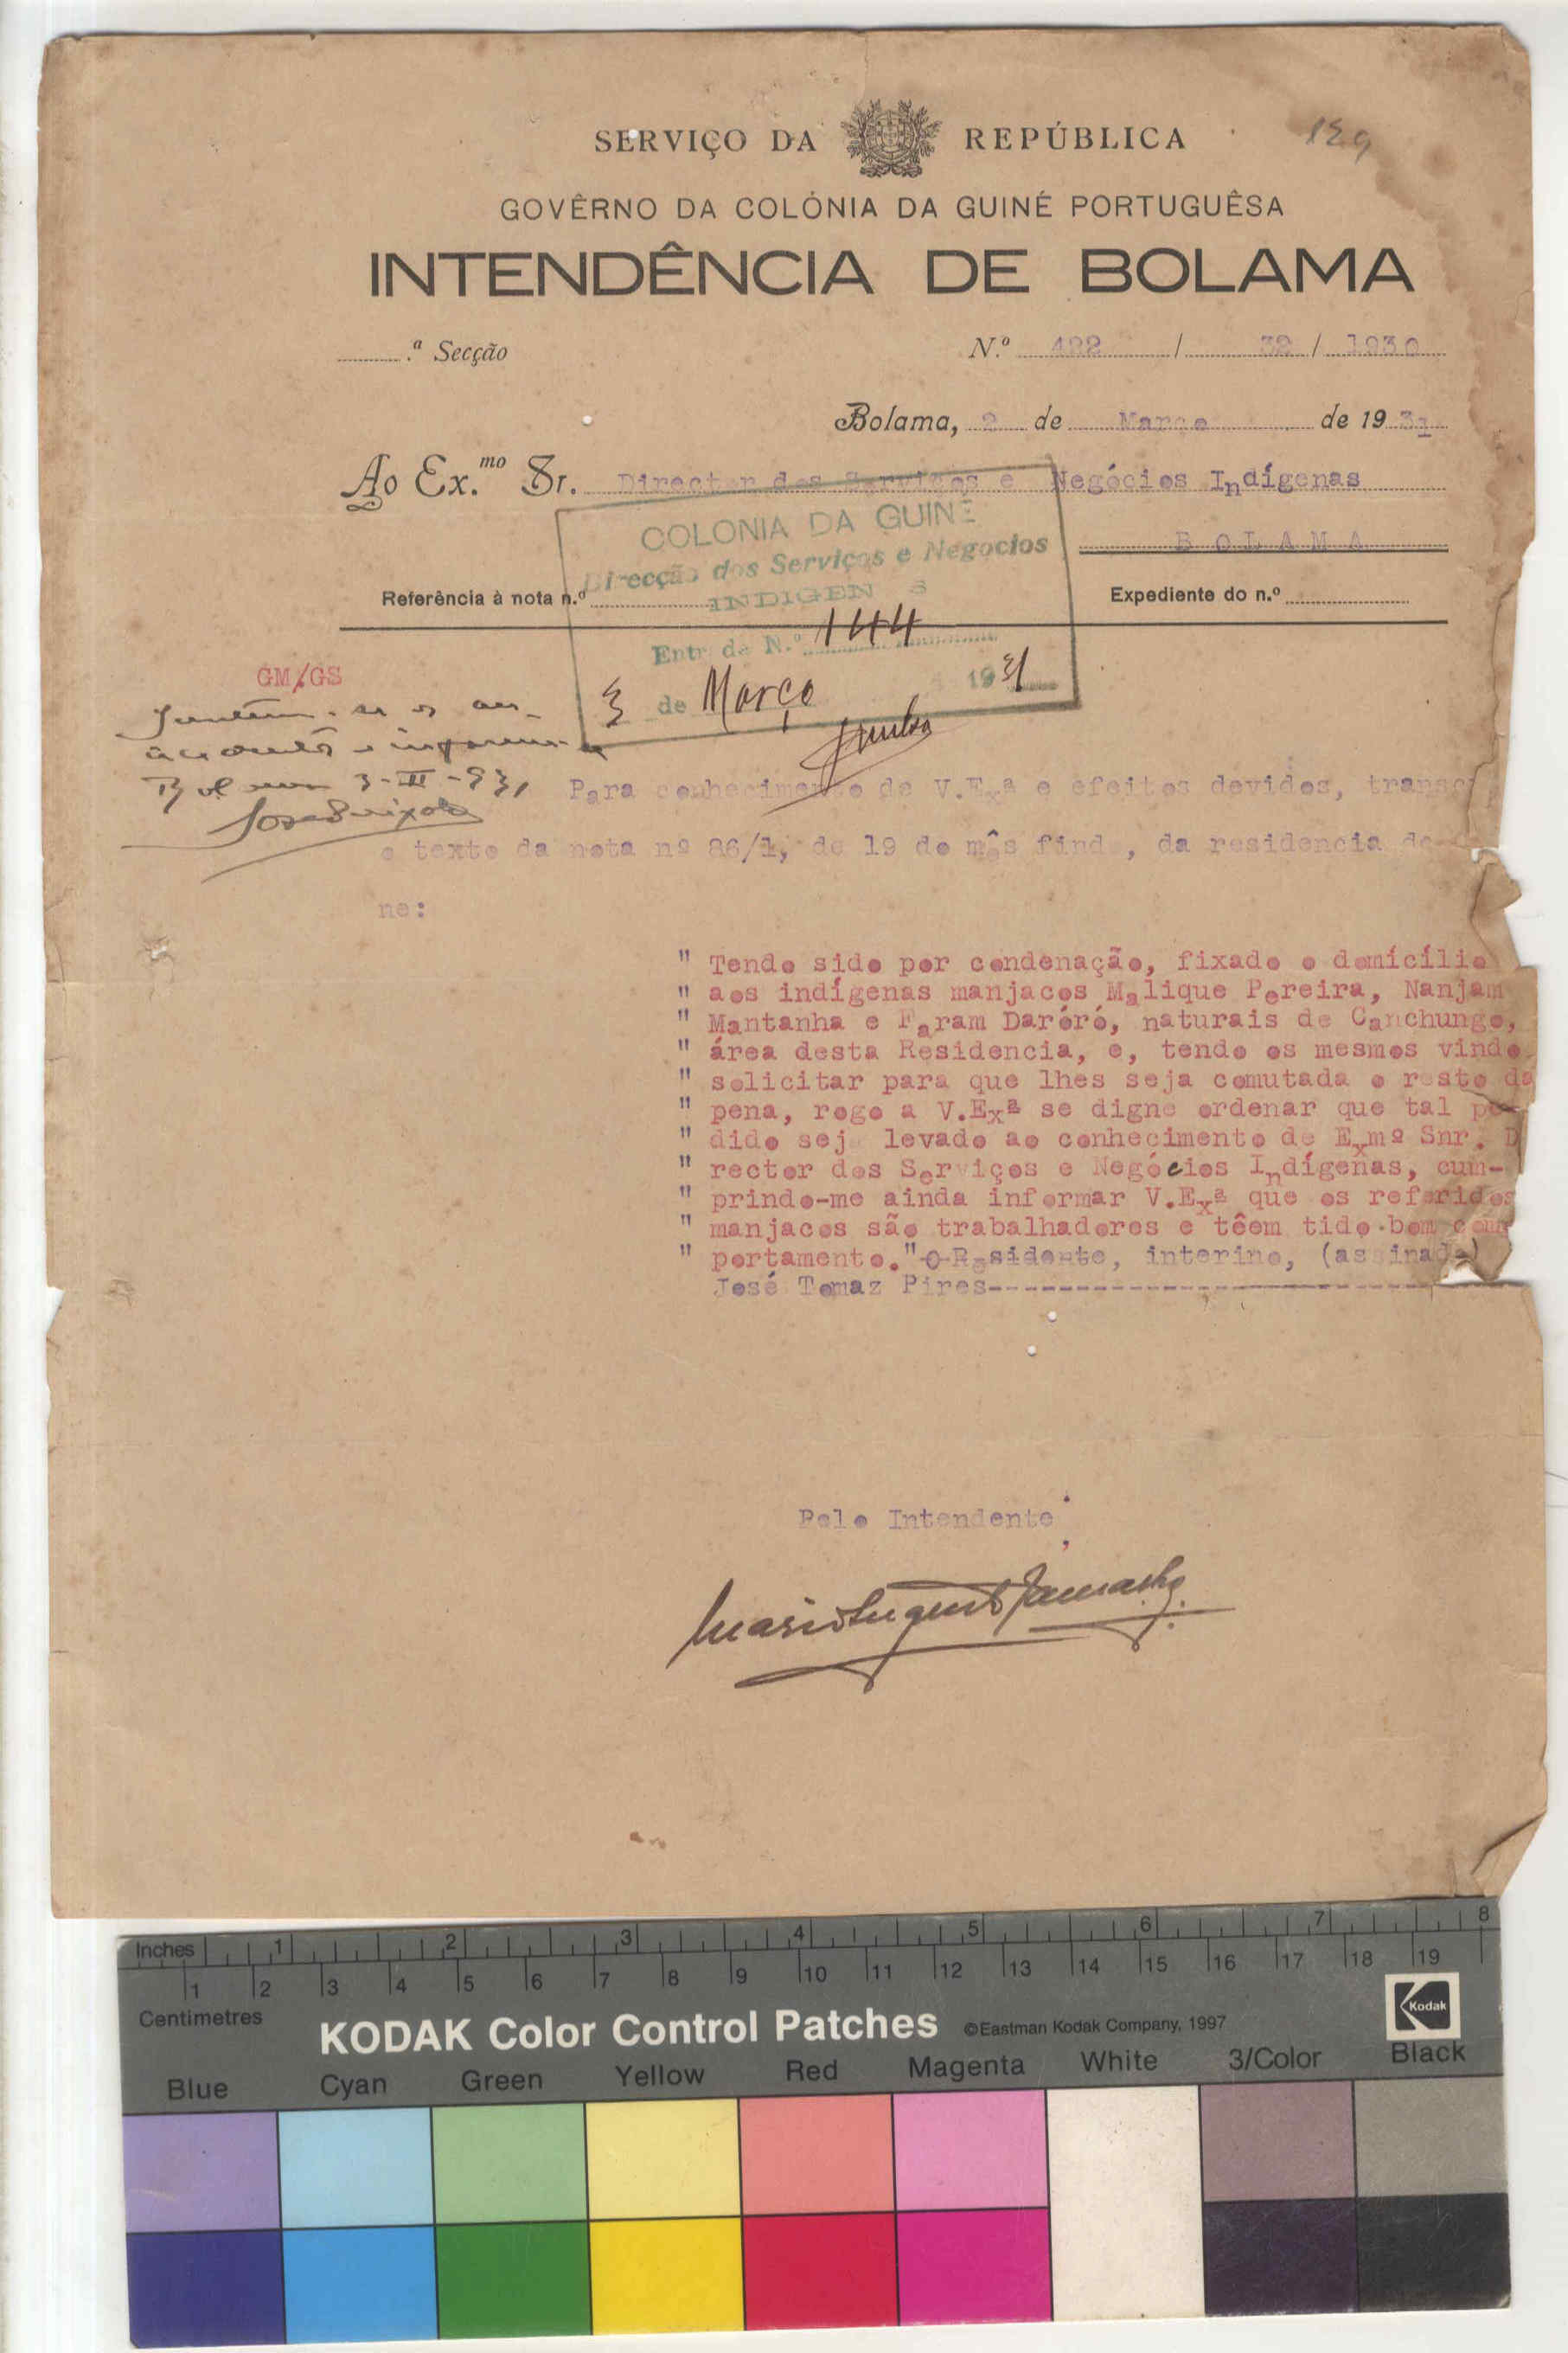 SERVIÇO DA REPÚBLICA
GOVÊRNO DA COLÓNIA DA GUINÉ PORTUGUÊSA
INTENDÊNCIA DE BOLAMA
.ª Secção
N.º 422 / 32 / 1930
Bolama, 2 de Março de 1931
Ao Ex.mo Sr. Director dos Serviços e Negócios Indígenas
BOLAMA
COLONIA DA GUINÉ
Direcção dos Serviços e Negocios
INDIGEN S
Referência à nota n.º
Expediente do n.º
Entr da N.º 144
3 de Março 1931
GM/GS
Bolama 3-III-931
Para conhecimento de V.Exª e efeitos devidos, transc
o texto da nota nº 86/1, de 19 do mês find , da residencia de
ne:
" Tendo sido por condenação, fixado o domícílio
" aos indígenas manjacos Malique Pereira, Nanjam
" Mantanha e Faram Daróró, naturais de Canchungo,
" área desta Residencia, e, tendo os mesmos vindo
" solicitar para que lhes seja comutada o resto da
" pena, rogo a V.Exª se digne ordenar que tal pe-
" dido sej levado ao conhecimento do Exmº Snr. D
" rector dos Serviços e Negócios Indígenas, cum-
" prindo-me ainda informar V.Exª que os referidos
" manjacos são trabalhadores e têem tido bom com
" portamento." O Residente, interino, (assinado)
José Tomaz Pires------------------------------
Pelo Intendente,
Inches 1 2 3 4 5 6 7 8
1 2 3 4 5 6 7 8 9 10 11 12 13 14 15 16 17 18 19
Centimetres
KODAK Color Control Patches ©Eastman Kodak Company, 1997
Kodak
Blue Cyan Green Yellow Red Magenta White 3/Color Black